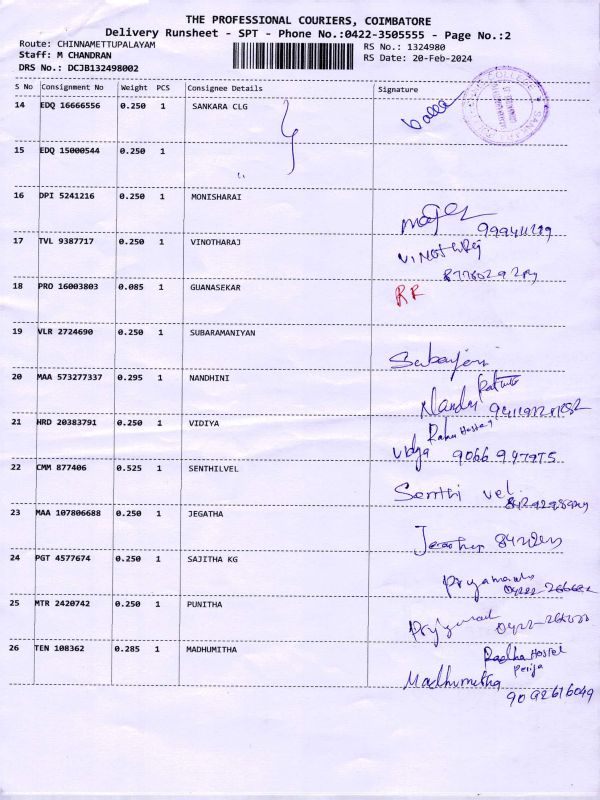 THE PROFESSIONAL COURIERS, COIMBATORE
Delivery Runsheet - SPT - Phone No.:0422-3505555 - Page No.:2
Route: CHINNAMETTUPALAYAM
RS No.: 1324980
Staff: M CHANDRAN
RS Date: 20-Feb-2024
DRS No.: DCJB132498002
S No Consignment No Weight PCS Consignee Details Signature
14 EDQ 16666556 0.250 1 SANKARA CLG
15 EDQ 15000544 0.250 1
16 DPI 5241216 0.250 1 MONISHARAI
17 TVL 9387717 0.250 1 VINOTHARAJ
18 PRO 16003803 0.085 1 GUANASEKAR RR
19 VLR 2724690 0.250 1 SUBARAMANIYAN
20 MAA 573277337 0.295 1 NANDHINI
21 HRD 20383791 0.250 1 VIDIYA
Vidya
22 CMM 877406 0.525 1 SENTHILVEL
Senthi vel
23 MAA 107806688 0.250 1 JEGATHA
24 PGT 4577674 0.250 1 SAJITHA KG
25 MTR 2420742 0.250 1 PUNITHA
26 TEN 108362 0.285 1 MADHUMITHA
Radha Hostel
Madhumitha
9092616049